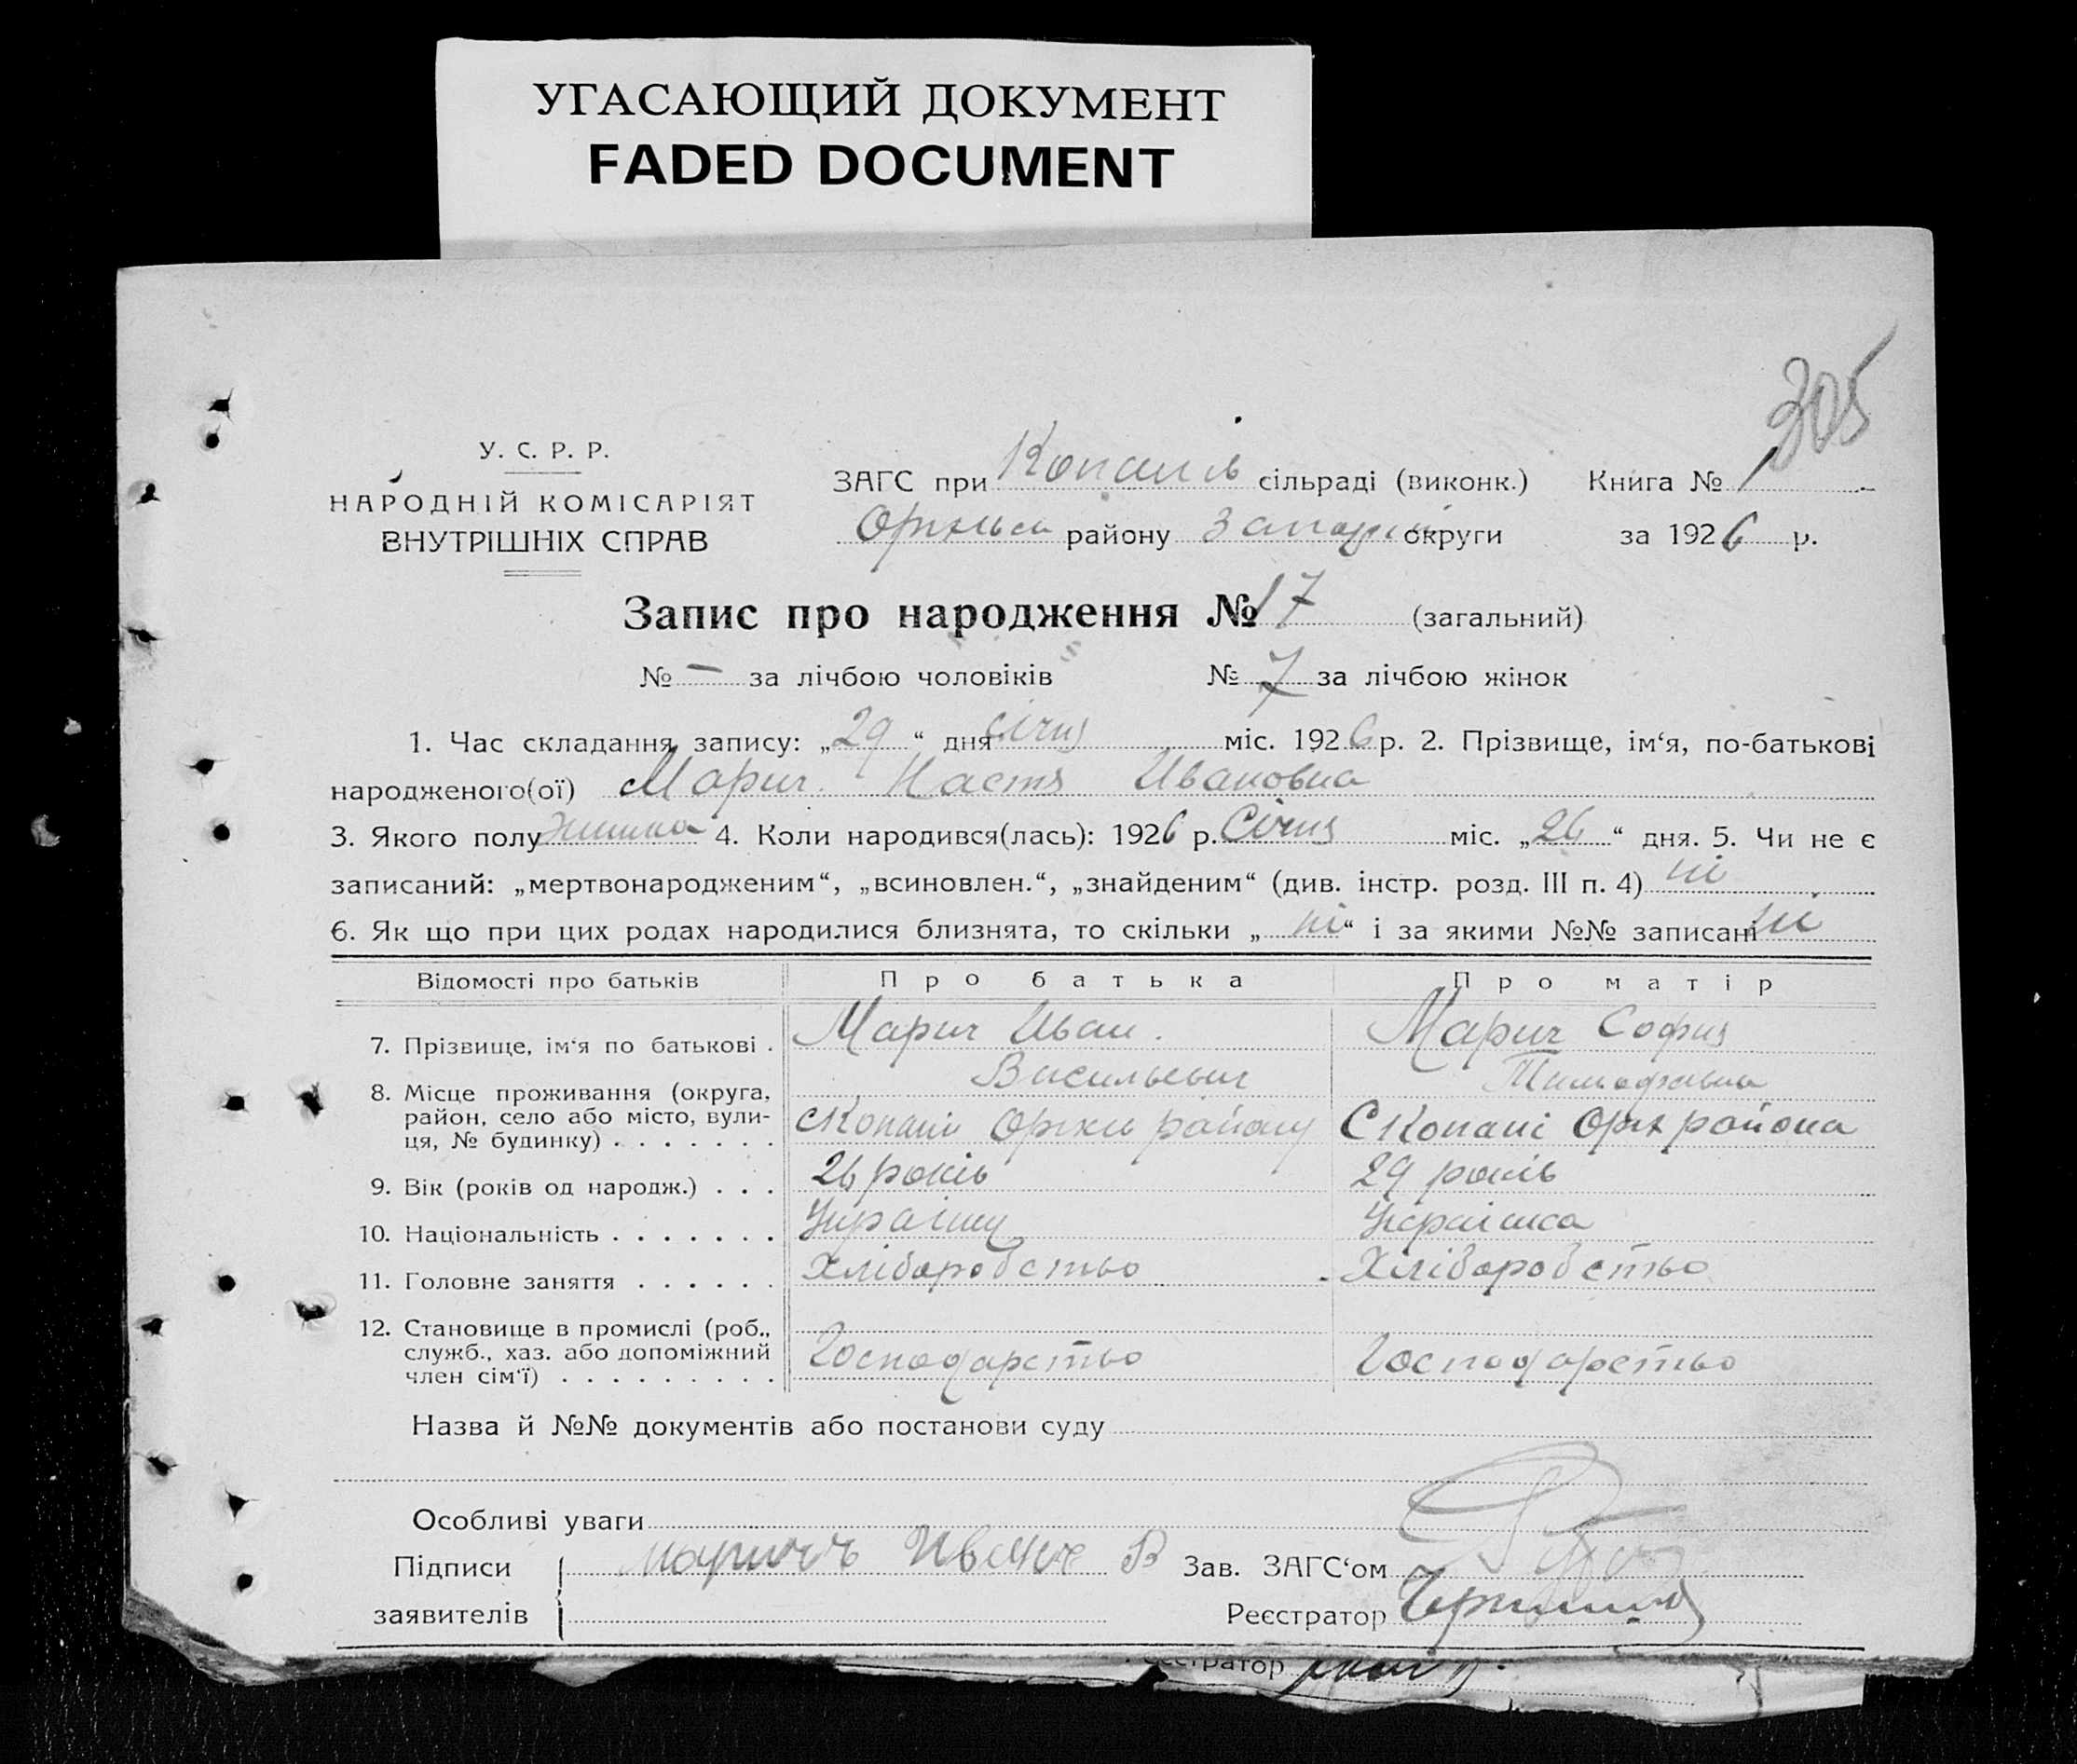 УГАСАЮЩИЙ ДОКУМЕНТ
FADED DOCUMENT
305
У. С. Р. Р.
НАРОДНІЙ КОМІСАРІЯТ
ВНУТРІШНІХ СПРАВ
ЗАГС при сільраді (виконк.) Книга № 1
району округи за 1926 р.
Запис про народження № 17 (загальний)
№ — за лічбою чоловіків № 7 за лічбою жінок
1. Час складання запису: „29“ дня Січня міс. 1926 р. 2. Прізвище, ім‘я, по-батькові
народженого(ої) Марич Настя Ивановна
3. Якого полу 4. Коли народився(лась): 1926 р. Січня міс. „26“ дня. 5. Чи не є
записаний: „мертвонародженим“, „всиновлен.“, „знайденим“ (див. інстр. розд. III п. 4) ні
6. Як що при цих родах народилися близнята, то скільки „ні“ і за якими №№ записані ні
Відомості про батьків Про батька Про матір
7. Прізвище, ім‘я по батькові . Марич Иван. Марич София
Васильевич
8. Місце проживання (округа, район, село або місто, вулиця, № будинку) . . . . . . . С Копані району С Копані Орх района
9. Вік (років од народж.) . . . 26 років 29 років
10. Національність . . . . . . . Українка
11. Головне заняття . . . . . . Хліборобство Хліборобство
12. Становище в промислі (роб., служб., хаз. або допоміжний член сім‘ї) . . . . . . . . . Господарство Господарство
Назва й №№ документів або постанови суду
Особливі уваги
Підписи заявителів Маричъ Иван В Зав. ЗАГС‘ом
Реєстратор
Реєстратор